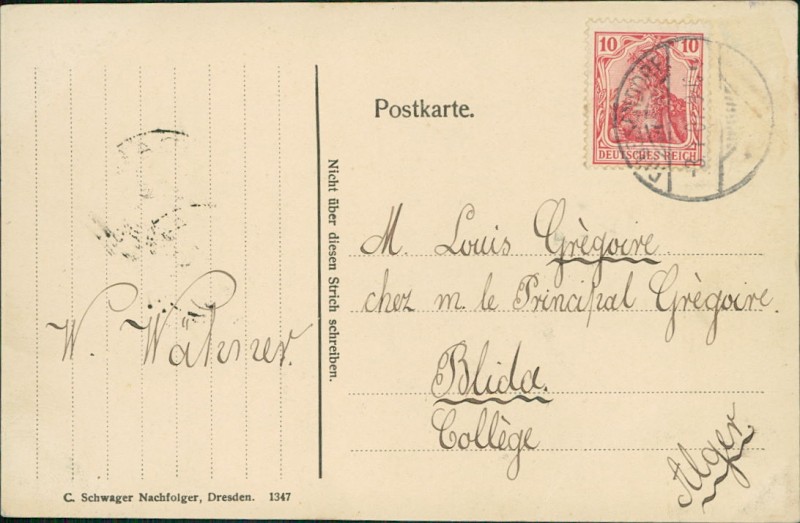 Postkarte.
10 10
DEUTSCHES REICH
Nicht über diesen Strich schreiben.
M. Louis Grègoire
chez m. le Principal Grègoire.
Blida.
Collège
Alger.
W. Wähner.
C. Schwager Nachfolger, Dresden. 1347